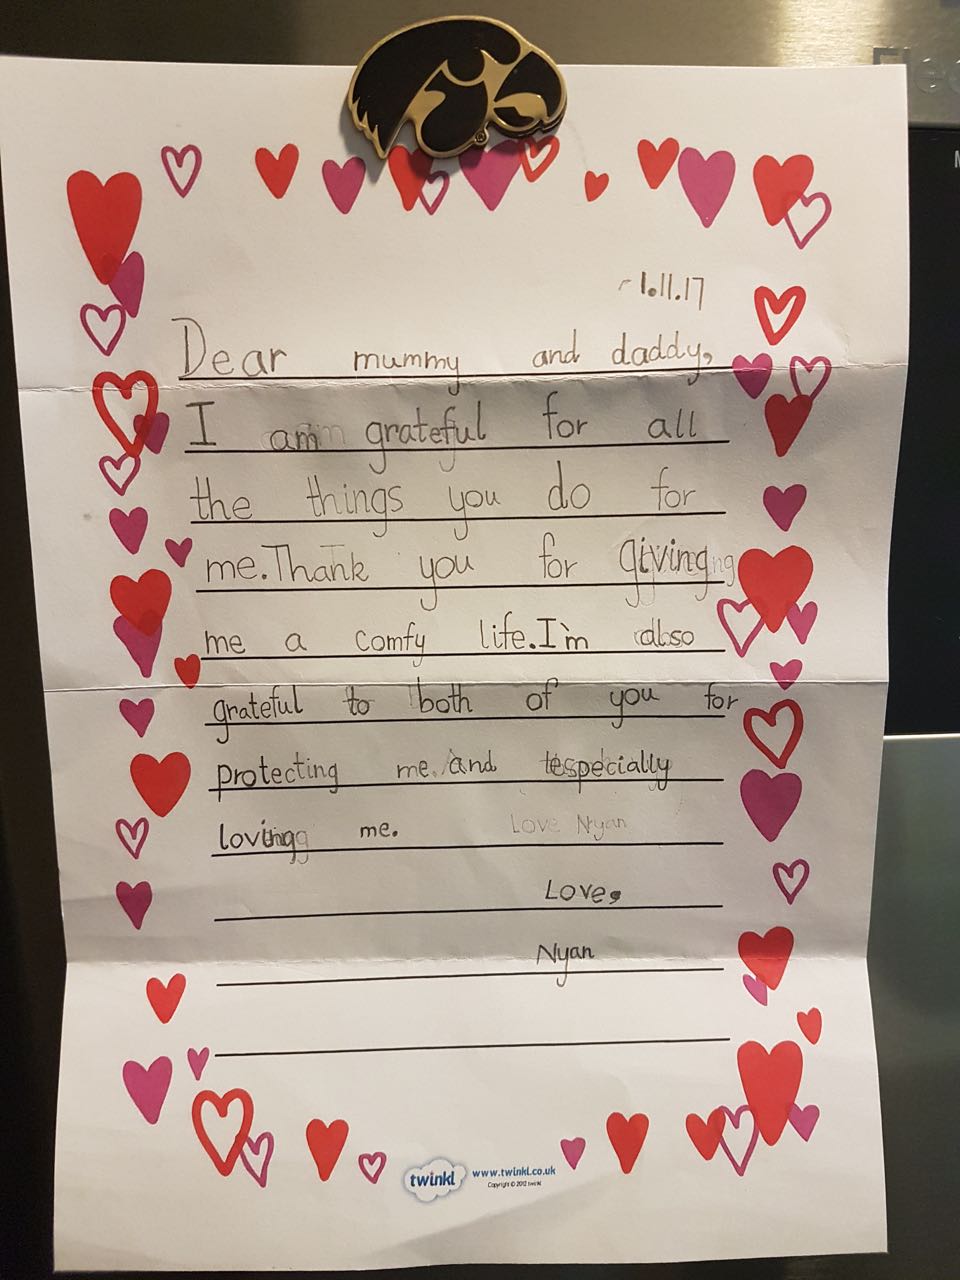 1.11.17
Dear mummy and daddy,
I am grateful for all
the things you do for
me. Thank you for giving
me a comfy life. I'm also
grateful to both of you for
protecting me and especially
loving me. Love Nyan
Love,
Nyan
twinkl www.twinkl.co.uk
Copyright © 2012 twinkl